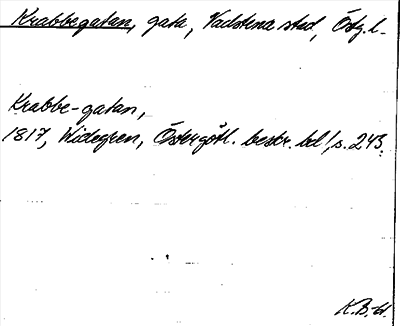 Krabbegatan, gata, Vadstena stad, Östg.l.
Krabbe-gatan,
1817, Widegren, Östergötl. beskr. bd 1, s. 243.
K.B.-W.